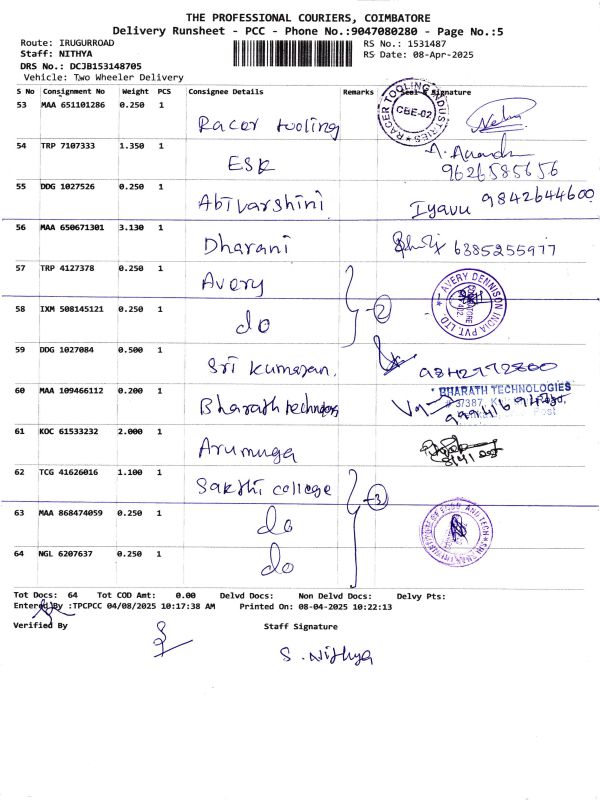 THE PROFESSIONAL COURIERS, COIMBATORE
Delivery Runsheet - PCC - Phone No.:9047080280 - Page No.:5
Route: IRUGURROAD RS No.: 1531487
Staff: NITHYA RS Date: 08-Apr-2025
DRS No.: DCJB153148705
Vehicle: Two Wheeler Delivery
S No Consignment No Weight PCS Consignee Details Remarks Seal & Signature
53 MAA 651101286 0.250 1 Racer tooling
RACER TOOLING INDUSTRIES CBE-02
54 TRP 7107333 1.350 1 ESK A. Anand
9626585656
55 DDG 1027526 0.250 1 Abivarshini Iyavu 9842644600
56 MAA 650671301 3.130 1 Dharani 6385255977
57 TRP 4127378 0.250 1 Avery
AVERY DENNISON INDIA PVT. LTD.
58 IXM 508145121 0.250 1 do 2
59 DDG 1027084 0.500 1 Sri kumaran. 9842772800
60 MAA 109466112 0.200 1 Bharath technologies
BHARATH TECHNOLOGIES
61 KOC 61533232 2.000 1 Arumuga
62 TCG 41626016 1.100 1 Sakthi college 3
63 MAA 868474059 0.250 1 do
64 NGL 6207637 0.250 1 do
Tot Docs: 64 Tot COD Amt: 0.00 Delvd Docs: Non Delvd Docs: Delvy Pts:
Entered By :TPCPCC 04/08/2025 10:17:38 AM Printed On: 08-04-2025 10:22:13
Verified By Staff Signature
S. Nithya